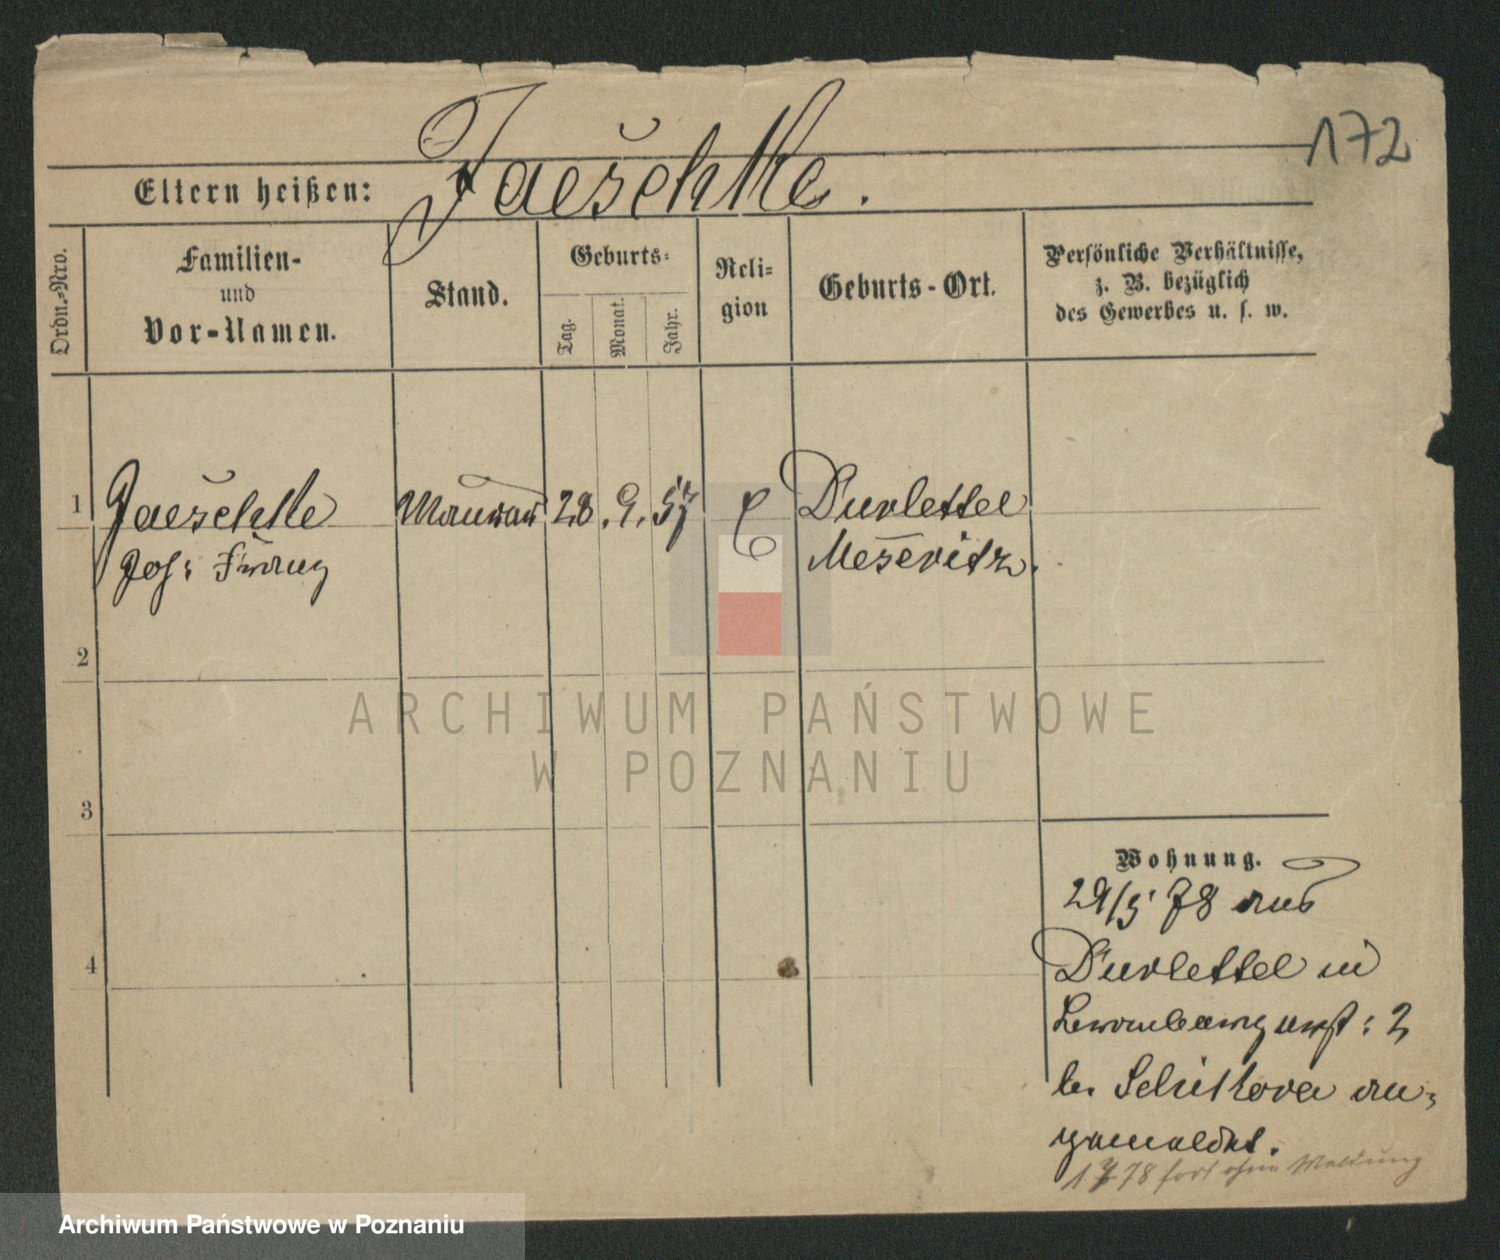 172
Eltern heißen: Jaeschke.
Ordn.-Nro.
Familien-
und
Vor-Namen.
Stand.
Geburts-
Tag.
Monat.
Jahr.
Reli-
gion
Geburts-Ort.
Persönliche Verhältnisse,
z. B. bezüglich
des Gewerbes u. s. w.
1 Jaeschke Maurer 28. 9. 57 Durlettel
Joh: Franz Meseritz.
2
ARCHIWUM PAŃSTWOWE
W POZNANIU
3
Wohnung.
29/5 78 aus
4
Durlettel in
2
b. an-
gemeldet.
78 fort ohne Meldung
Archiwum Państwowe w Poznaniu